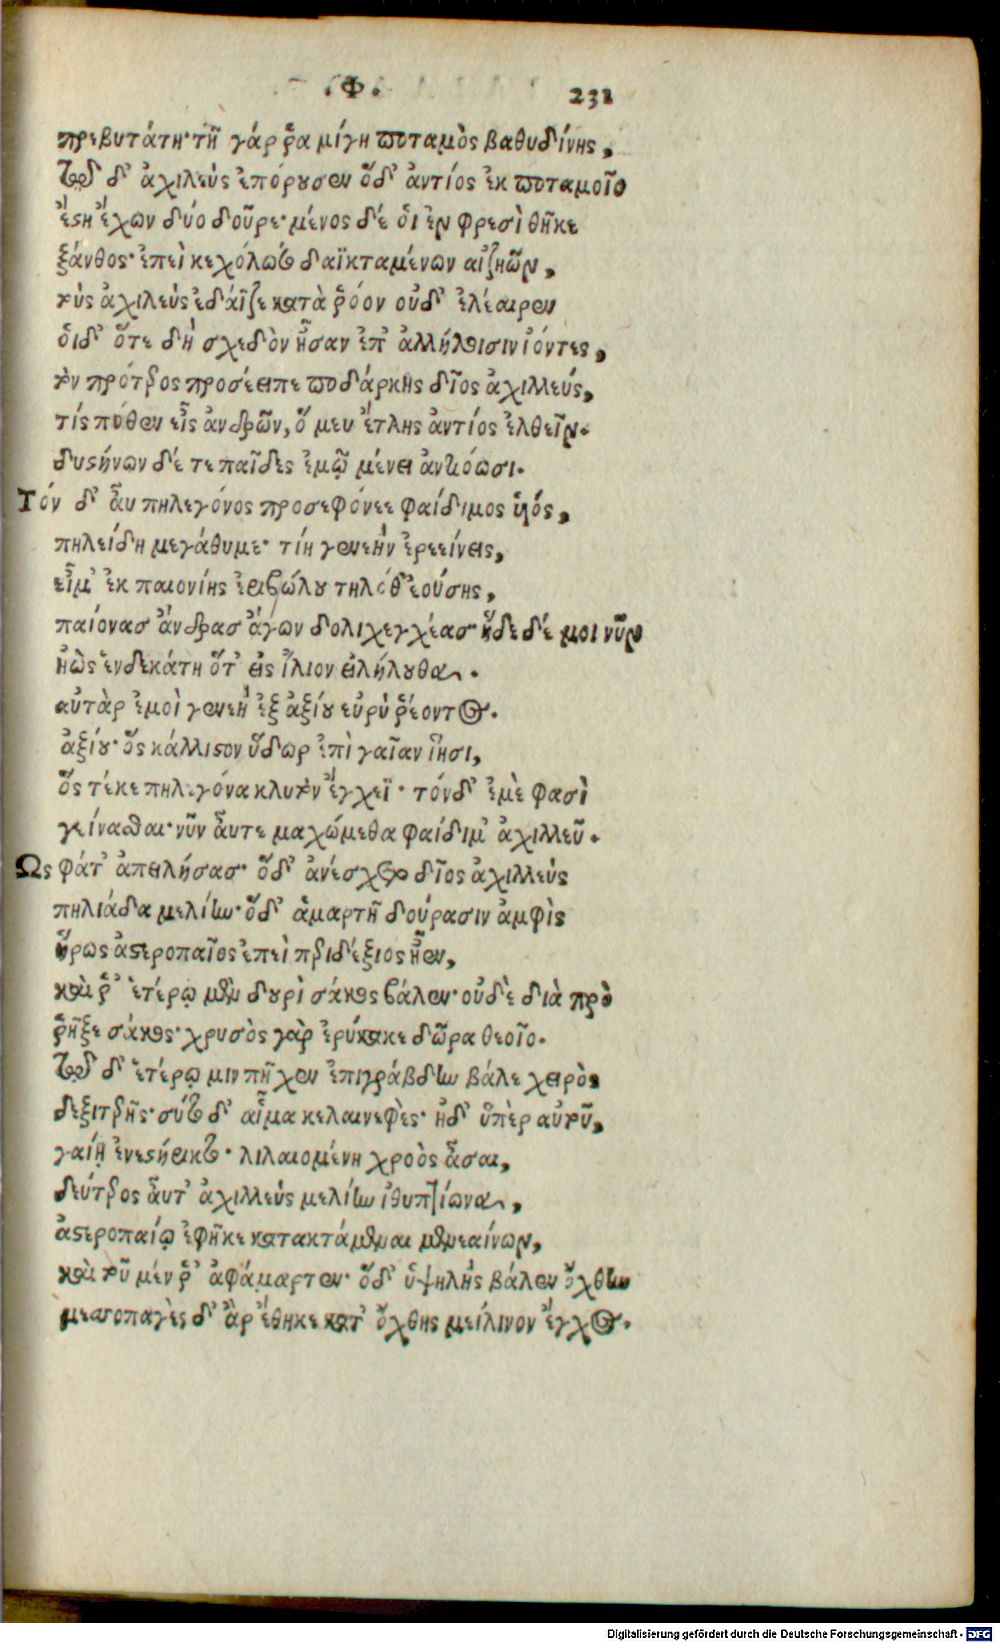 .Φ. 231
πρεσβυτάτη· τῇ γάρ ῥα μίγη ποταμὸς βαθυδίνης,
τῷ δ' ἀχιλεὺς ἐπόρουσεν ὅδ' ἀντίος ἐκ ποταμοῖο
ἔστη ἔχων δύο δοῦρε· μένος δέ ὁι ἐν φρεσὶ θῆκε
ξάνθος· ἐπεὶ κεχόλωτο δαϊκταμένων αἰζηῶν,
τοὺς ἀχιλεὺς ἐδάϊζε κατὰ ῥόον οὐδ' ἐλέαιρεν
ὁιδ' ὅτε δὴ σχεδὸν ἦσαν ἐπ' ἀλλήλοισιν ἰόντες,
τὸν πρότερος προσέειπε ποδάρκης δῖος ἀχιλλεύς,
τίς πόθεν εἶς ἀνδρῶν, ὅ μευ ἔτλης ἀντίος ἐλθεῖν.
δυστήνων δέ τε παῖδες ἐμῷ μένει ἀντιόωσι.
Τόν δ' ἆυ πηλεγόνος προσεφόνεε φαίδιμος ὑιός,
πηλείδη μεγάθυμε· τίη γενεὴν ἐρεείνεις,
εἶμ' ἐκ παιονίης ἐριβώλου τηλόθ' ἐούσης,
παίονασ ἄνδρασ ἄγων δολιχεγχέασ· ἥδε δέ μοι νῦν
ἠὼς ἑνδεκάτη ὅτ' εἰς ἴλιον εἰλήλουθα.
αὐτὰρ ἐμοὶ γενεὴ ἐξ ἀξίου εὐρὺ ῥέοντος.
ἀξίου· ὅς κάλλιστον ὕδωρ ἐπὶ γαῖαν ἵησι,
ὅς τέκε πηλεγόνα κλυτὸν ἔγχεϊ· τόνδ' ἐμὲ φασὶ
γείνασθαι· νῦν ἆυτε μαχώμεθα φαίδιμ' ἀχιλλεῦ.
Ως φάτ' ἀπειλήσασ· ὅδ' ἀνέσχετο δῖος ἀχιλλεὺς
πηλιάδα μελίην· ὅδ' ἁμαρτῇ δούρασιν ἀμφὶς
ἥρως ἀστεροπαῖος ἐπεὶ περιδέξιος ἦεν,
καὶ ῥ' ἑτέρῳ μὲν δουρὶ σάκος βάλεν· οὐδὲ διὰ πρὸ
ῥῆξε σάκος· χρυσὸς γὰρ ἐρύκακε δῶρα θεοῖο.
τῷ δ' ἑτέρῳ μιν πῆχεν ἐπιγράβδην βάλε χειρὸς
δεξιτερῆς· σύτο δ' αἷμα κελαινεφὲς· ἡδ' ὑπὲρ αὐτοῦ,
γαίῃ ἐνεστήεικτο· λιλαιομένη χροὸς ἆσαι,
δεύτερος ἆυτ' ἀχιλλεὺς μελίην ἰθυπτίωνα,
ἀστεροπαίῳ ἐφῆκε κατακτάμεναι μενεαίνων,
καὶ τοῦ μέν ῥ' ἀφάμαρτεν· ὅδ' ὑψηλὴς βάλεν ὄχθην
μεσσοπαγὲς δ' ἂρ ἔθηκε κατ' ὄχθης μείλινον ἔγχος.
Digitalisierung gefördert durch die Deutsche Forschungsgemeinschaft - DFG